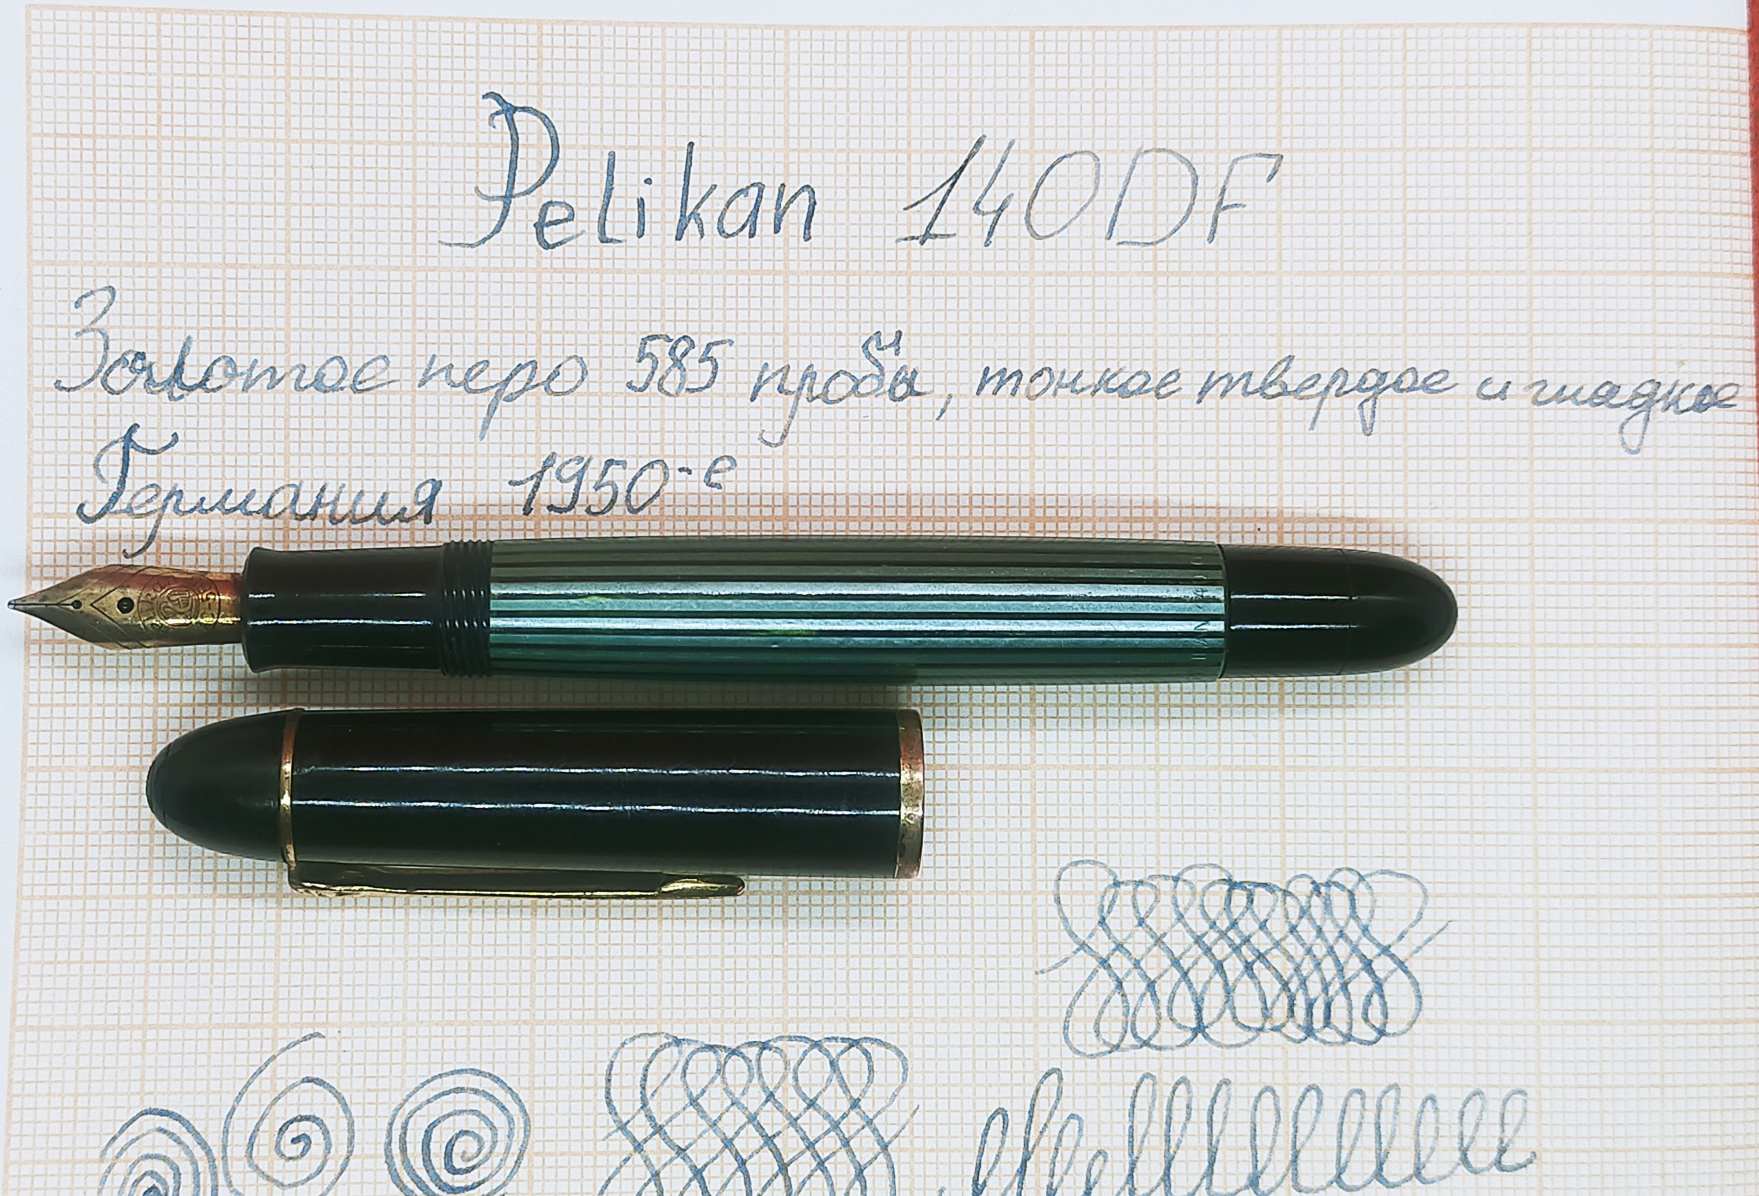 Pelikan 140DF
Золотое перо 585 пробы, тонкое твердое и гладкое
Германия 1950-е